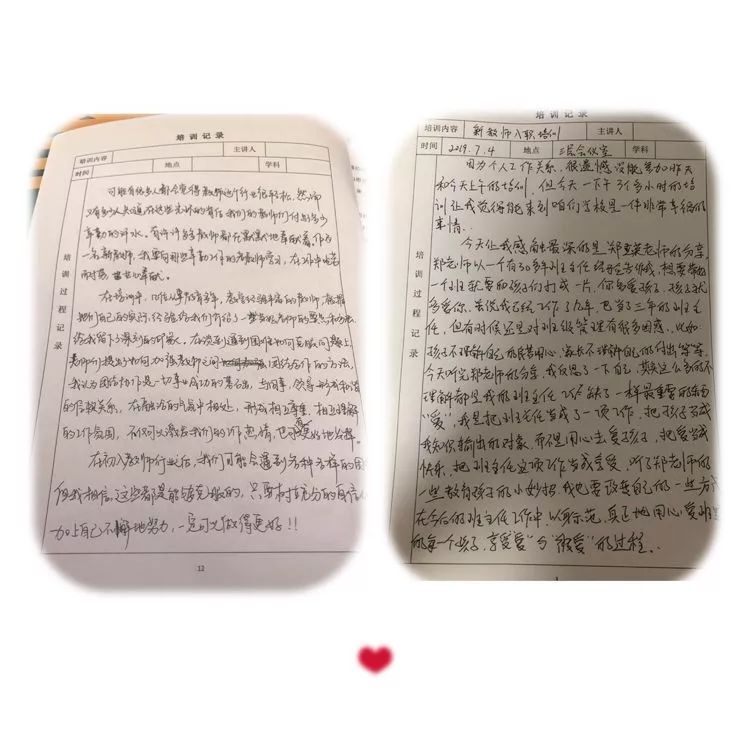 培训记录
培训内容 主讲人
时间 地点 学科
培训过程记录
可能有很多人都会觉得教师这个行业很轻松,然而
又有多少人知道在这些光环的背后我们的教师们付出多少
辛勤的汗水。有许许多多教师都在默默地奉献着,作为
一名新教师,我要向那些辛勤工作的老教师学习,在工作中
在培训中,
他们自己的实际经验给我们介绍了一些
给我留下了深刻的印象。在谈到遇到困难如何克服问题上
老师们提出了如何加强教师之间团结合作的方法,
我认为团结协作是一切事业成功的基础,与同事、领导形成和谐
的信赖关系,在融洽的气氛中相处,形成相互尊重、相互理解
的工作氛围,不仅可以激发我们的工作热情,也可更好地发挥。
在初入教师行业后,我们可能会遇到各种各样的困
但我相信,这些都是能够克服的,只要树立充分的自信心
加上自己不懈地努力,一定可以做得更好!!
12
培训记录
培训内容 新教师入职培训 主讲人
时间 2019.7.4 地点 三层会议室 学科
培训过程记录
因为个人工作关系,很遗憾没能参加昨天
和今天上午的培训,但今天一下午3个多小时的培
训让我觉得能来到咱们学校是一件非常幸福的
事情。
今天让我感触最深的是郑老师的分享,
郑老师以一个有30多年班主任经验告诉我,想要带好
一个班就要和孩子们打成一片,你多爱孩子,孩子就
多爱你。虽说我已经工作了九年,已当了三年的班主
任,但有时候还是对班级管理有很多困惑,比如:
孩子不理解自己的良苦用心,家长不理解自己的付出等等。
今天听完郑老师的分享,我反思了一下自己,其实这么多的不
理解都是我的班主任工作缺了一样最重要的东西
“爱”,我是把班主任当成了一项工作,把孩子当成
我知识输出的对象,而不是用心去爱孩子,把爱当成
快乐,把班主任这项工作当成享受,听了郑老师的
一些教育孩子的小妙招,我也要改变自己的一些方
在今后的班主任工作中,以身示范,真正地用心爱班
的每一个孩子,享受“爱”与“被爱”的过程。